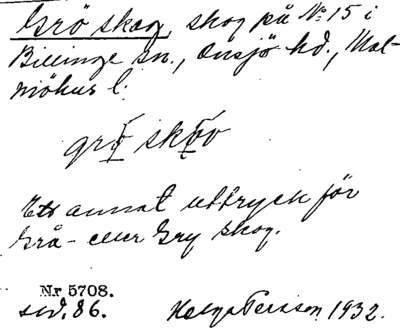 Grö skog, skog på № 15 i
Billinge sn., Onsjö hd., Mal-
möhus l.
grö skov
Ett annat uttryck för
Grå- eller Gry skog.
Nr 5708.
sid. 86. Helge Persson 1932.